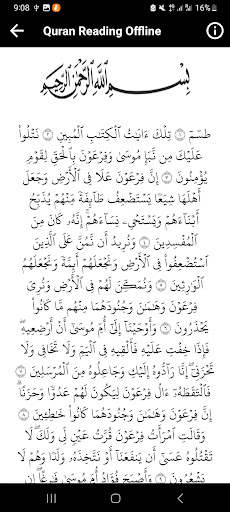 9:08
16%
Quran Reading Offline
بِسْمِ ٱللَّهِ ٱلرَّحْمَٰنِ ٱلرَّحِيمِ
طسٓمٓ ۝ تِلْكَ ءَايَٰتُ ٱلْكِتَٰبِ ٱلْمُبِينِ ۝ نَتْلُوا۟
عَلَيْكَ مِن نَّبَإِ مُوسَىٰ وَفِرْعَوْنَ بِٱلْحَقِّ لِقَوْمٍ
يُؤْمِنُونَ ۝ إِنَّ فِرْعَوْنَ عَلَا فِى ٱلْأَرْضِ وَجَعَلَ
أَهْلَهَا شِيَعًا يَسْتَضْعِفُ طَآئِفَةً مِّنْهُمْ يُذَبِّحُ
أَبْنَآءَهُمْ وَيَسْتَحْىِۦ نِسَآءَهُمْ إِنَّهُۥ كَانَ مِنَ
ٱلْمُفْسِدِينَ ۝ وَنُرِيدُ أَن نَّمُنَّ عَلَى ٱلَّذِينَ
ٱسْتُضْعِفُوا۟ فِى ٱلْأَرْضِ وَنَجْعَلَهُمْ أَئِمَّةً وَنَجْعَلَهُمُ
ٱلْوَٰرِثِينَ ۝ وَنُمَكِّنَ لَهُمْ فِى ٱلْأَرْضِ وَنُرِىَ
فِرْعَوْنَ وَهَٰمَٰنَ وَجُنُودَهُمَا مِنْهُم مَّا كَانُوا۟
يَحْذَرُونَ ۝ وَأَوْحَيْنَآ إِلَىٰٓ أُمِّ مُوسَىٰٓ أَنْ أَرْضِعِيهِ
فَإِذَا خِفْتِ عَلَيْهِ فَأَلْقِيهِ فِى ٱلْيَمِّ وَلَا تَخَافِى وَلَا
تَحْزَنِىٓ إِنَّا رَآدُّوهُ إِلَيْكِ وَجَاعِلُوهُ مِنَ ٱلْمُرْسَلِينَ ۝
فَٱلْتَقَطَهُۥٓ ءَالُ فِرْعَوْنَ لِيَكُونَ لَهُمْ عَدُوًّا وَحَزَنًا
إِنَّ فِرْعَوْنَ وَهَٰمَٰنَ وَجُنُودَهُمَا كَانُوا۟ خَٰطِـِٔينَ ۝
وَقَالَتِ ٱمْرَأَتُ فِرْعَوْنَ قُرَّتُ عَيْنٍ لِّى وَلَكَ لَا
تَقْتُلُوهُ عَسَىٰٓ أَن يَنفَعَنَآ أَوْ نَتَّخِذَهُۥ وَلَدًا وَهُمْ لَا
يَشْعُرُونَ ۝ وَأَصْبَحَ فُؤَادُ أُمِّ مُوسَىٰ فَٰرِغًا إِن